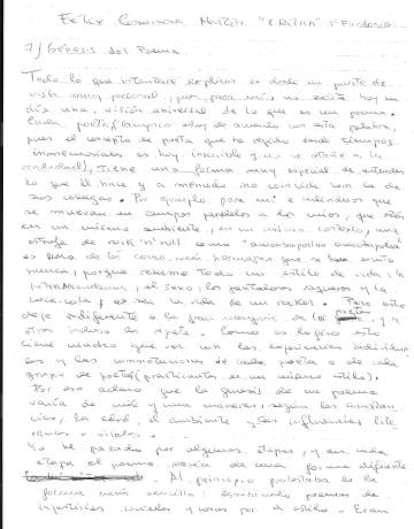 Felix Casanova Martín "CRITICA" 1º Fundación
1/ Génesis del Poema
Todo lo que intentaré explicar es desde un punto de
vista muy personal, pues para mí no existe hoy en
día una visión universal de lo que es un poema.
Cada poeta (tampoco estoy de acuerdo con esta palabra,
pues el concepto de poeta que ha regido desde tiempos
inmemoriales es hoy inservible y no se atañe a la
realidad), tiene una forma muy especial de entender
lo que él hace y a menudo no coincide con la de
sus colegas. Por ejemplo, para mí e individuos que
se muevan en campos paralelos a los míos, que estén
en un mismo ambiente, en un mismo contexto, una
estrofa de rock'n'roll como
es una de las cosas más hermosas que se han escrito
nunca, porque resume todo un estilo de vida: la
intrascendencia, el sexo, los pantalones vaqueros y la
coca-cola, es la vida de un rocker. Pero esto
deja indiferente a la gran mayoría de los poetas y a
otros incluso les repele. Como es lógico esto
tiene mucho que ver con las experiencias individua
les y las connotaciones de cada poeta o de cada
grupo de poetas (practicantes de un mismo estilo).
Por eso aclaro que la génesis de un poema
varía de mil y una maneras, según las circunstan
cias, la edad, el ambiente y las influencias lite
rarias o vitales.
Yo he pasado por algunas etapas, y en cada
etapa el poema nacía de una forma diferente
. Al principio protestaba de la
forma más sencilla: escribiendo poemas de
injusticias sociales y cosas por el estilo. Eran